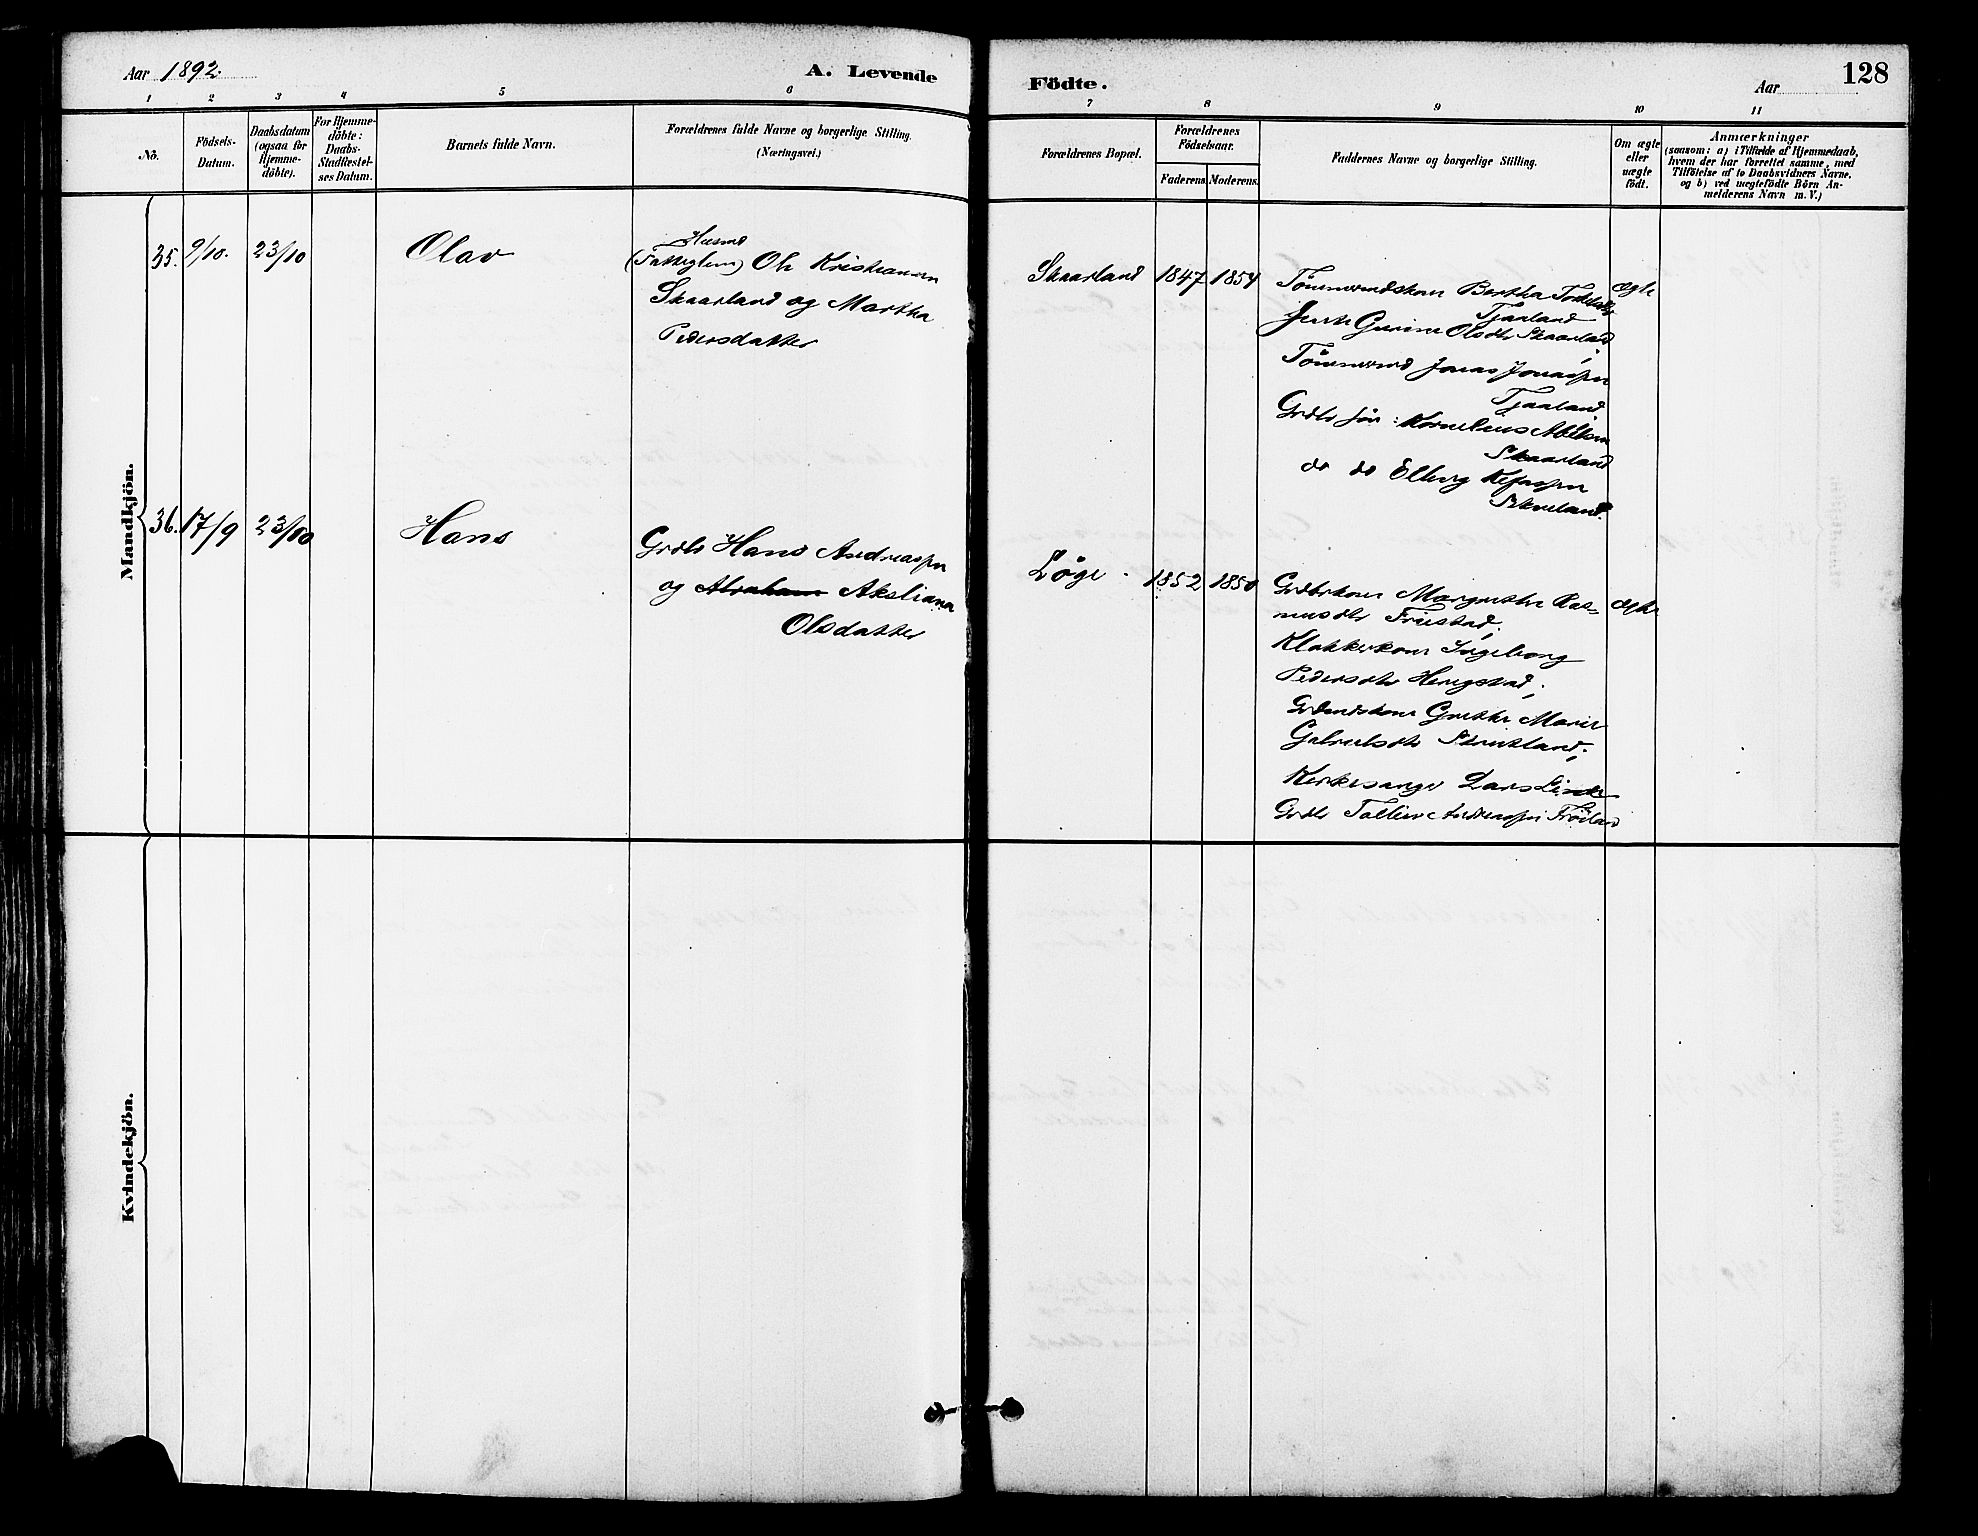 Aar 1892.
A. Levende
Födte.
Aar
128
1 2 3 4 5 6 7 8 9 10 11
No.
Födsels-
Datum.
Daabsdatum
(ogsaa for
Hjemme-
döbte).
For Hjemme-
döbte:
Daabs-
Stadfæstel-
ses Datum.
Barnets fulde Navn.
Forældrenes fulde Navne og borgerlige Stilling.
(Næringsvei.)
Forældrenes Bopæl.
Forældrenes
Födselsaar.
Faderens.
Moderens.
Faddernes Navne og borgerlige Stilling.
Om ægte
eller
uægte
födt.
Anmærkninger
(saasom: a) i Tilfælde af Hjemmedaab,
hvem der har forrettet samme, med
Tilföielse af to Daabsvidners Navne,
og b) ved uægtefödte Börn An-
melderens Navn m. V.)
Mandkjön.
35. 9/10. 23/10 Olav
Husmd
(Fattiglem) Ole Kristiansen
Skaarland og Martha
Pedersdatter
Skaarland 1847 1854
Tömmermdskone Bertha
Tjaaland
Gurine Olsdtr Skaarland
Tömmermd Jonas Jonassen
Tjaaland
Grdbr sön: Kornelius Abelsen
Skaarland
do do Elling
ægte
36. 17/9 23/10 Hans
Grdbr Hans Andreassen
og Abraham Akseliana
Olsdatter
Löge. 1852 1850
Grdbrkone Margrethe Ras-
musdtr Friestad;
Klokkerkone Ingeborg
Pedersdtr Hengstad;
Grdmdskone Grethe Marie
Gabrielsdtr
Kirkesanger Lars Linde
Grdbr Tollier Andreassen
ægte
Kvindekjön.